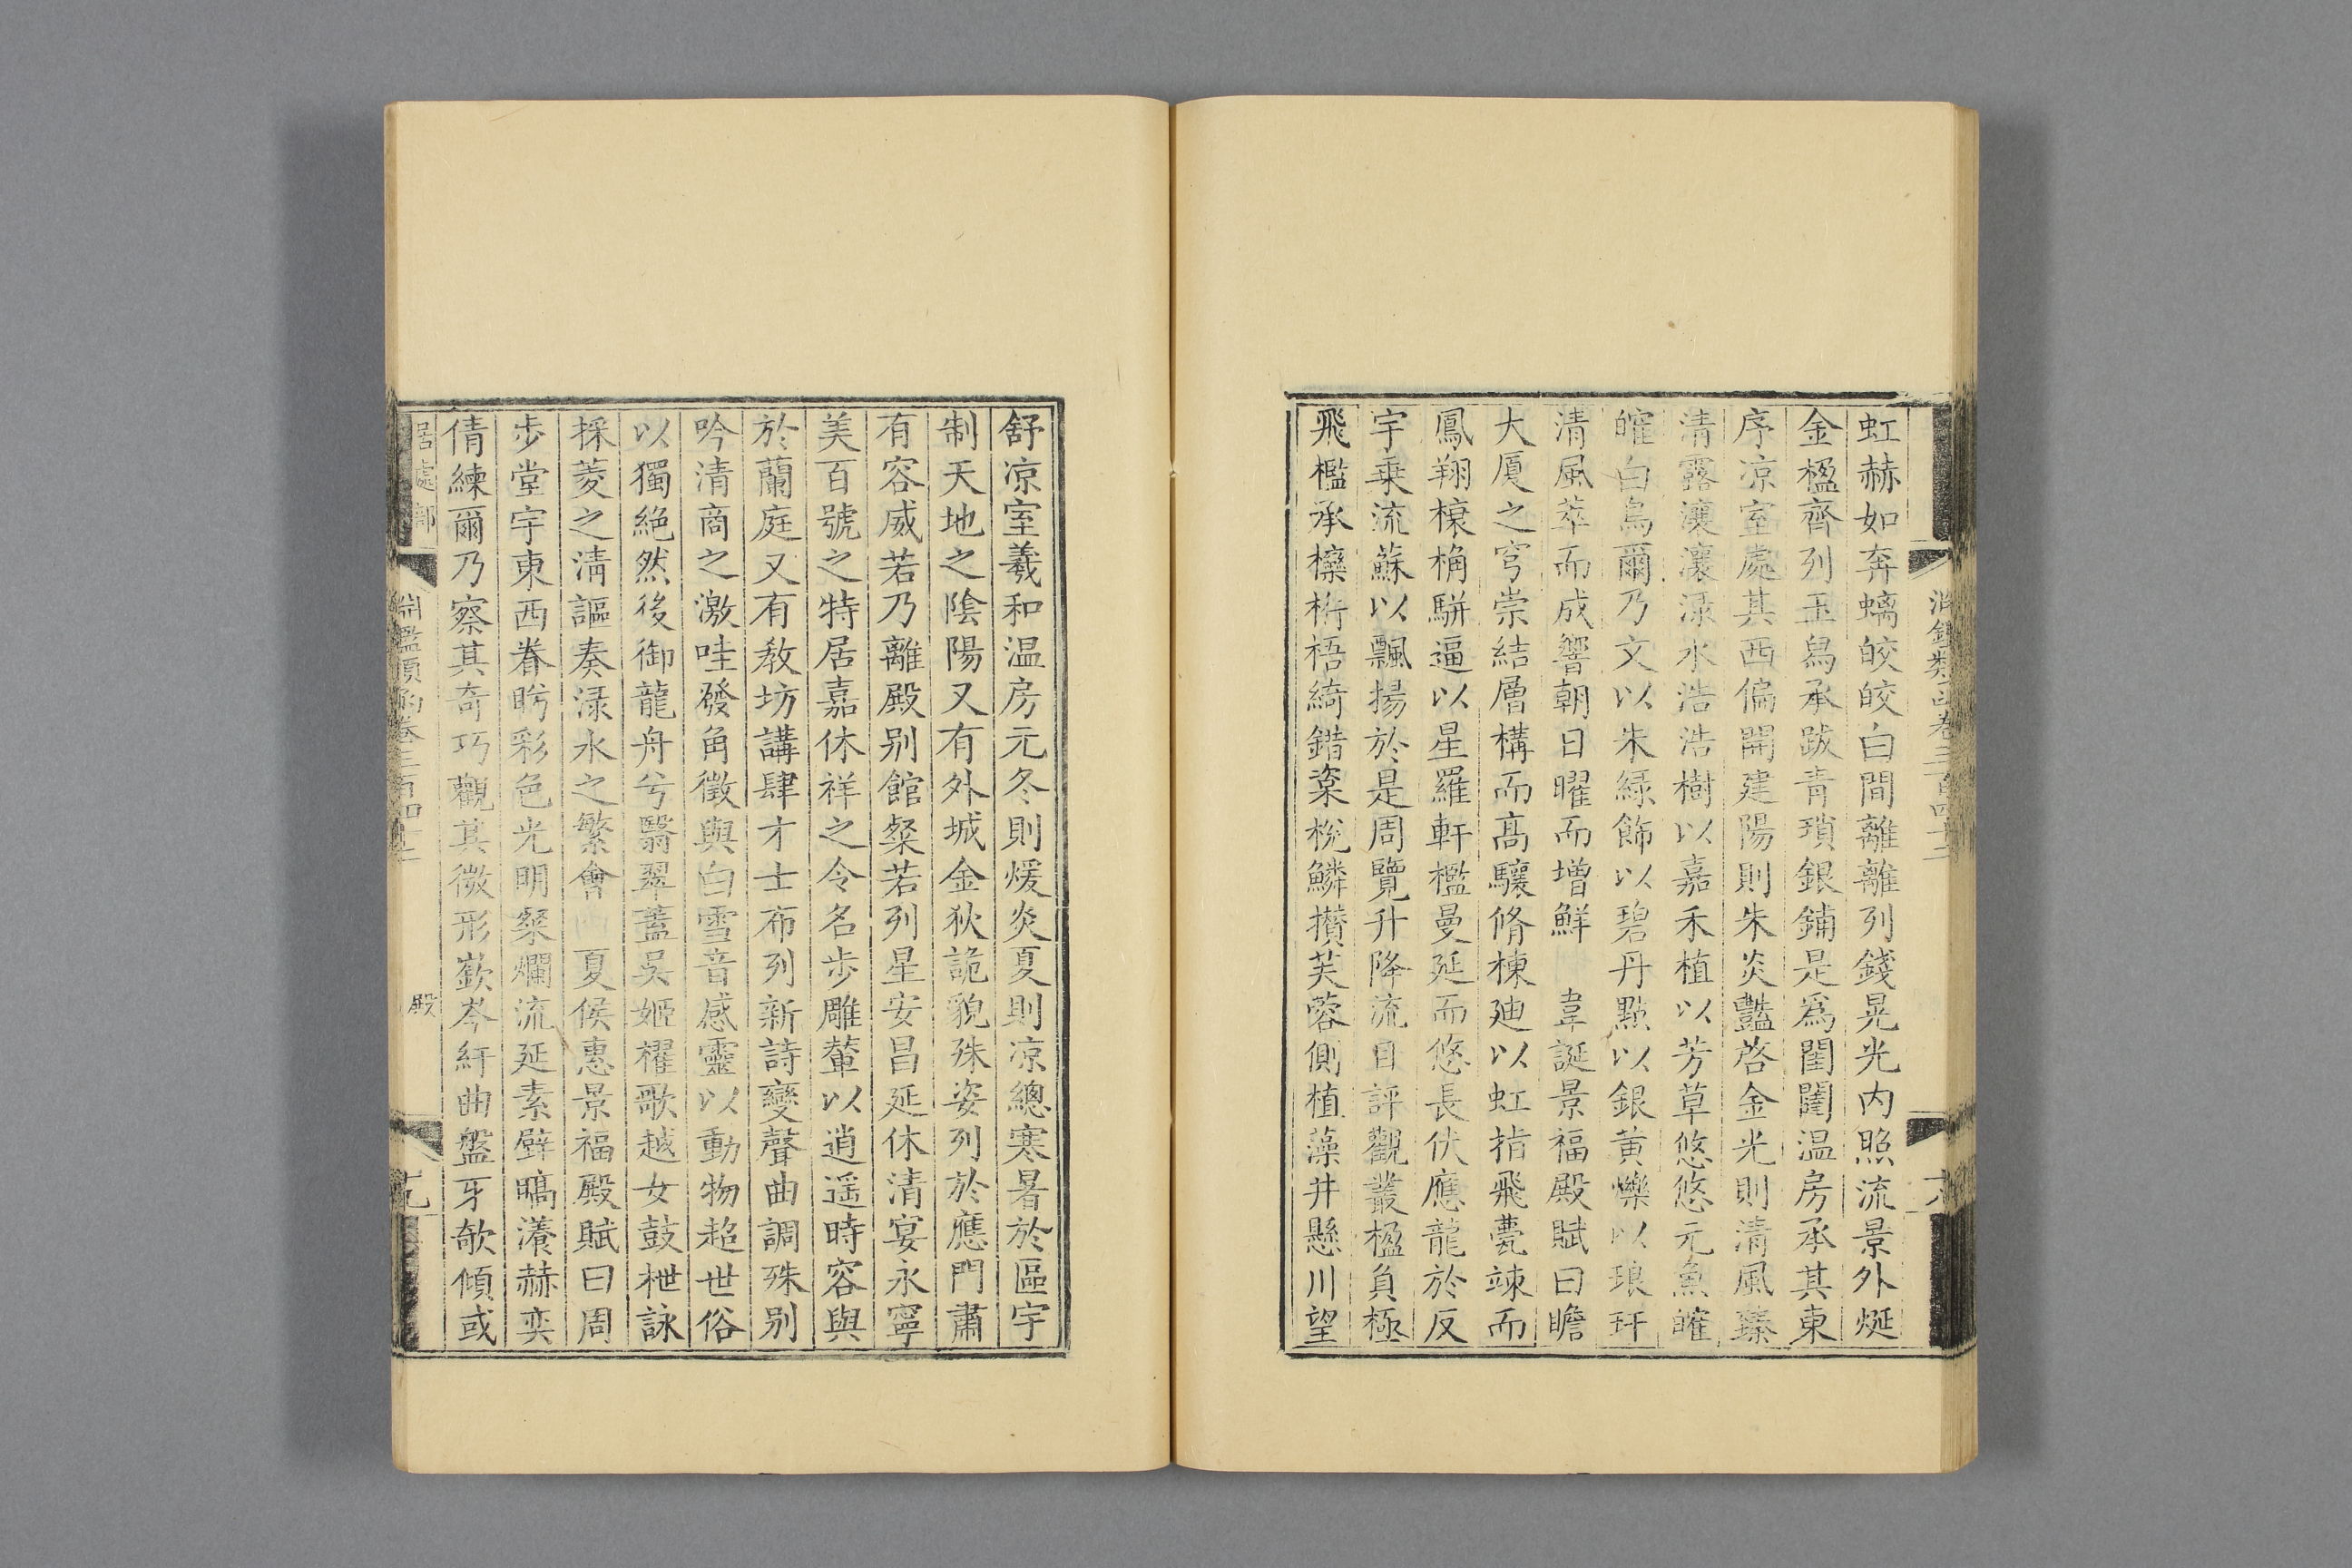 虹赫如奔螭皎皎白間離離列錢晃光内照流景外烻
金楹齊列玉舄承跋青瑣銀鋪是爲閨闥温房承其東
序凉室處其西偏開建陽則朱炎豔啓金光則清風臻
清露瀼瀼淥水浩浩樹以嘉禾植以芳草悠悠元魚㿥
㿥白鳥爾乃文以朱綠飾以碧丹點以銀黄爍以琅玕
清風萃而成響朝日曜而增鮮 韋誕景福殿賦曰瞻
大厦之穹崇結層構而髙驤脩棟廸以虹指飛甍竦而
鳳翔榱桷駢逼以星羅軒檻曼延而悠長伏應龍於反
宇乗流蘇以飄揚於是周覽升降流目評觀叢楹負極
飛檻承欒桁梧綺錯楶梲鱗攅芙蓉側植藻井懸川望
舒凉室羲和温房元冬則煖炎夏則凉總寒暑於區宇
制天地之陰陽又有外城金狄詭貌殊姿列於應門肅
有容威若乃離殿别館粲若列星安昌延休清宴永寧
美百號之特居嘉休祥之令名步雕輦以逍遥時容與
於蘭庭又有教坊講肆才士布列新詩變聲曲調殊别
吟清商之激哇發角徵與白雪音感靈以動物超世俗
以獨絶然後御龍舟兮翳翠蓋吳姬櫂歌越女鼓枻詠
採菱之淸謳奏淥水之繁會 夏侯惠景福殿賦曰周
步堂宇東西眷眄彩色光明粲爛流延素壁暠瀁赫奕
倩練爾乃察其奇巧觀其微形嶔岑紆曲盤牙欹傾或
居處部 淵鑑類函卷三百四十二 殿 十九